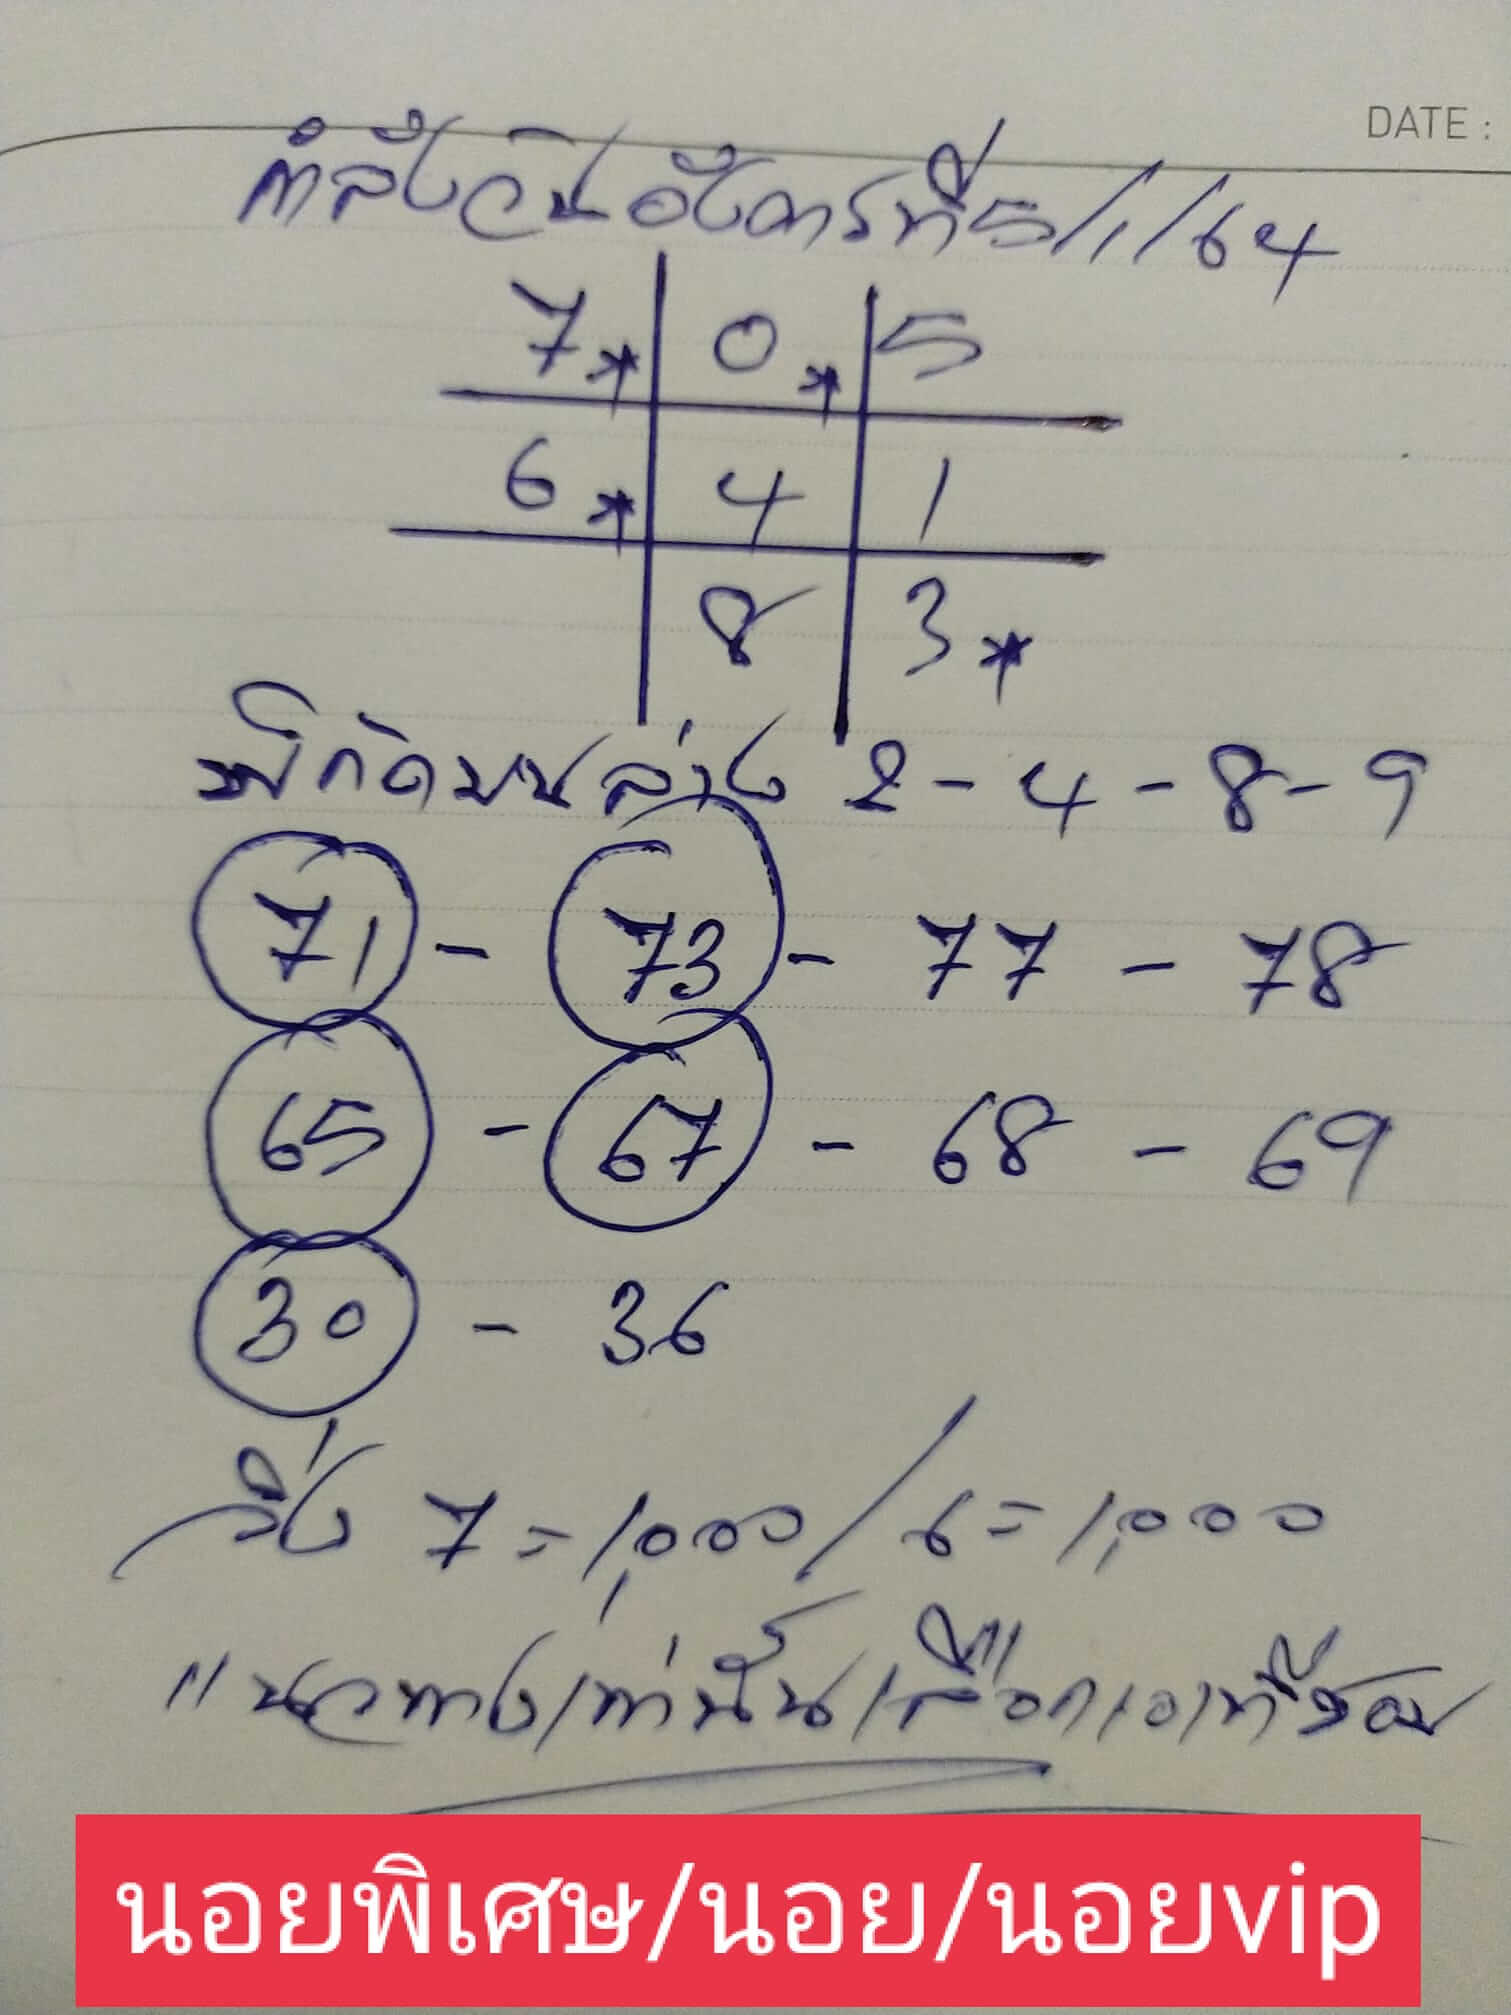 DATE :
กำลังวันอังคารที่ 5/1/64
7* 0* 5
6* 4 1
8 3*
พิกัดบนล่าง 2 - 4 - 8 - 9
71 - 73 - 77 - 78
65 - 67 - 68 - 69
30 - 36
วิ่ง 7 = 1,000 / 6 = 1,000
แนวทางเท่านั้นเลือกเอาที่ชอบ
นอยพิเศษ/นอย/นอยvip